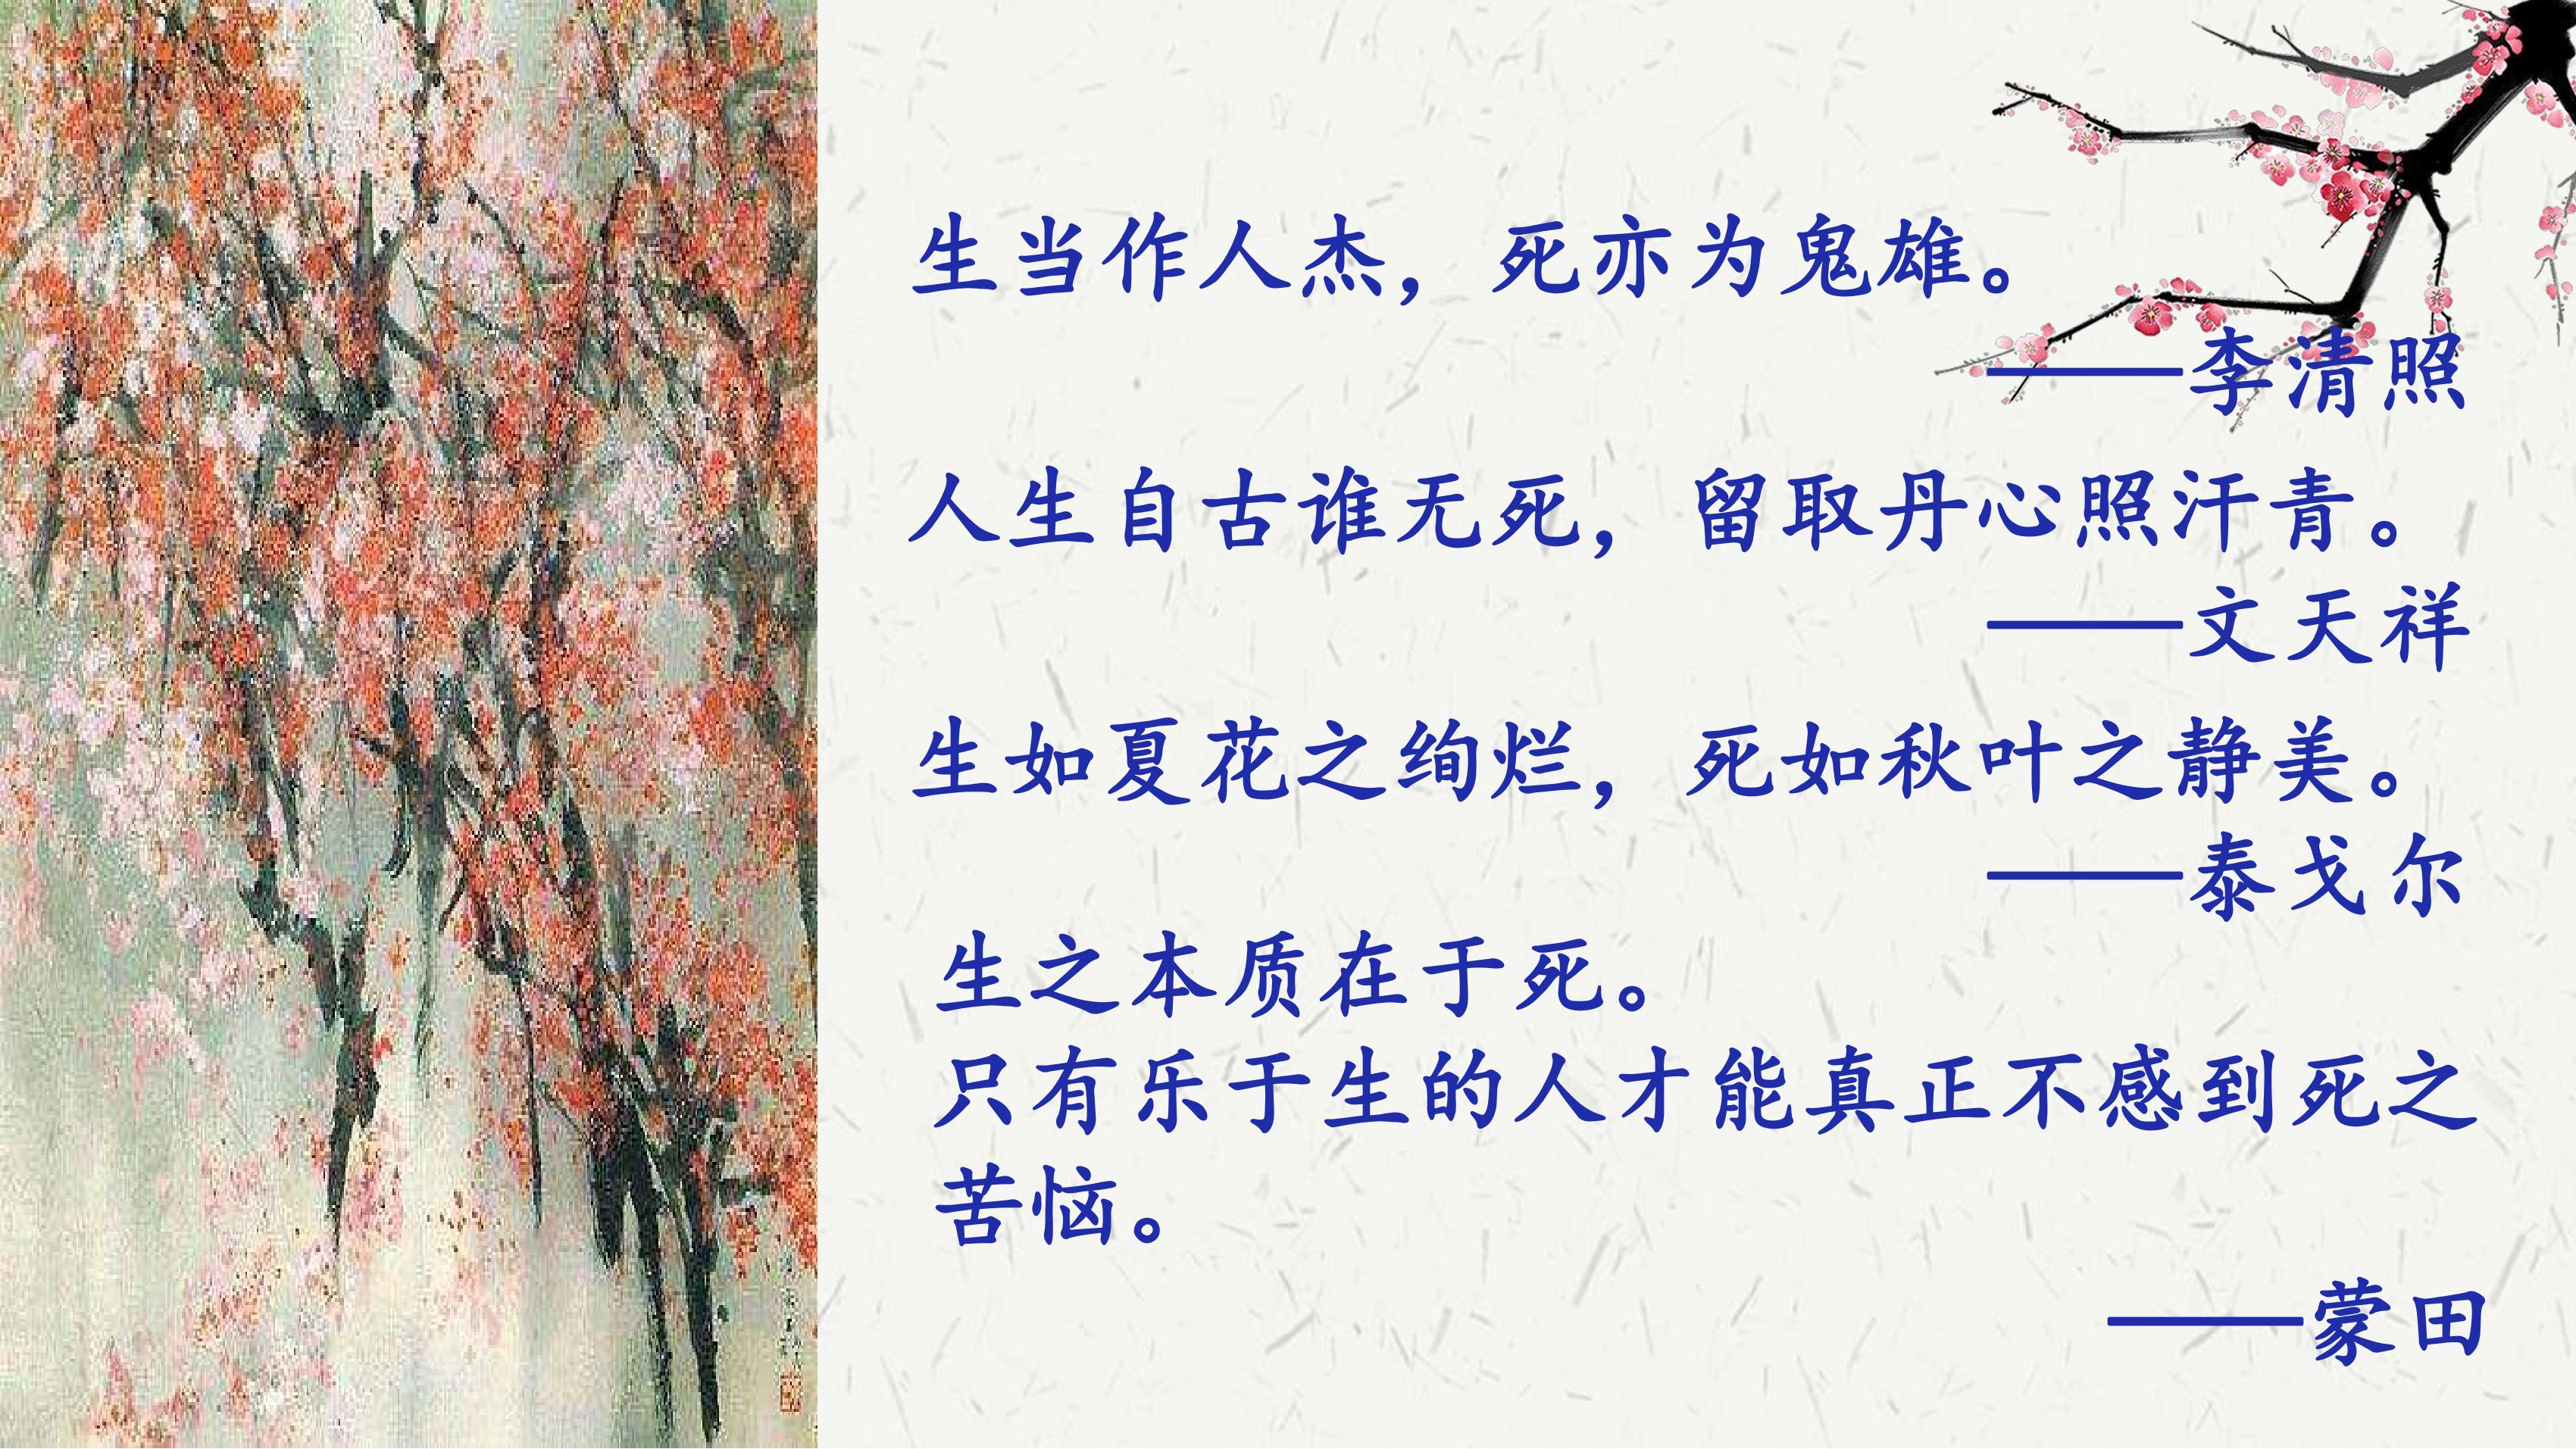 生当作人杰，死亦为鬼雄。
——李清照
人生自古谁无死，留取丹心照汗青。
——文天祥
生如夏花之绚烂，死如秋叶之静美。
——泰戈尔
生之本质在于死。
只有乐于生的人才能真正不感到死之
苦恼。
——蒙田